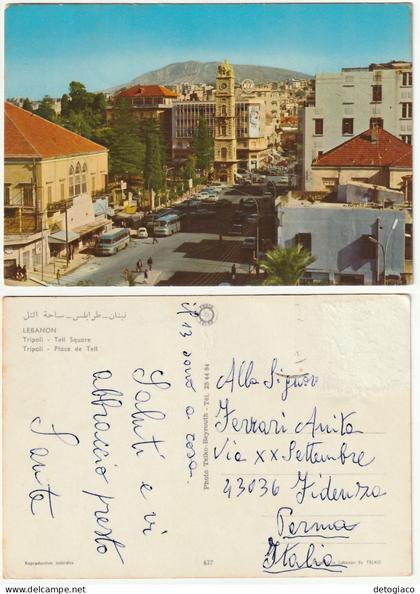 لبنان - طرابلس - ساحة التل
LEBANON
Tripoli - Tell Square
Tripoli - Place de Tell
il 13 sono a casa.
Saluti e vi
abbraccio presto
Santa
Photo Telko-Beyrouth - Tél. 25 44 84
Alla Signora
Ferrari Anita
Via XX Settembre
43036 Fidenza
Parma
Italia
Reproduction interdite
637
by TELKO
www.detogiaco.com